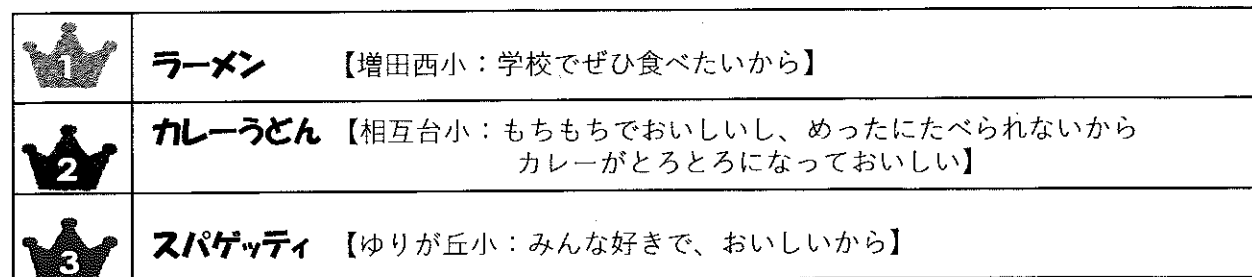 1 ラーメン 【増田西小：学校でぜひ食べたいから】
2 カレーうどん 【相互台小：もちもちでおいしいし、めったにたべられないから
カレーがとろとろになっておいしい】
3 スパゲッティ 【ゆりが丘小：みんな好きで、おいしいから】